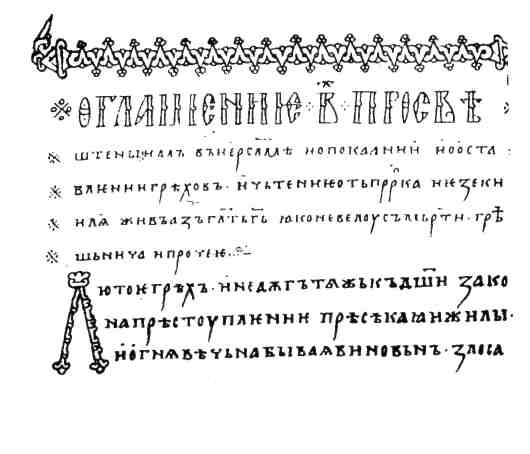 ОГЛАШЕНИѤ · В҃ · ПРОСВѢ
ШТЕНЫИМЪ ВЪ ИѤРСЛМѢ И О ПОКАꙖНИИ И О ОСТА
ВЛѤНИИ ГРѢХОВЪ · И ЧЬТЕНИѤ ОТЪ ПРРКА ИѤЗЕКИ
ИЛꙖ ЖИВЪ АЗЪ ГЛТЬ ГЬ ꙖКО НЕ ВЕЛОУ СЪМЬРТИ · ГРѢ
ШЬНИЧА И ПРОЧЕѤ
ЛЮТО Ѥ ГРѢХЪ · И НЕДѪГЪ ТѦЖЬКЪ ДШИ ЗАКО
НА ПРѢСТОУПЛѤНИИ ПРѢСѢКАꙖ И ЖИЛЫ ·
И ОГНѪ ВѢЧЬНА БЫВАѦ ВИНОВЬНЪ · ЗЛО СА